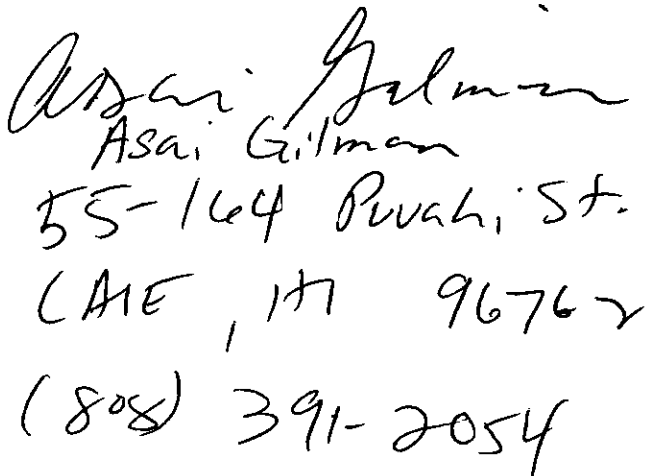 Asai Gilman
Asai Gilman
55-164 Puuahi St.
LAIE, HI 96762
(808) 391-2054